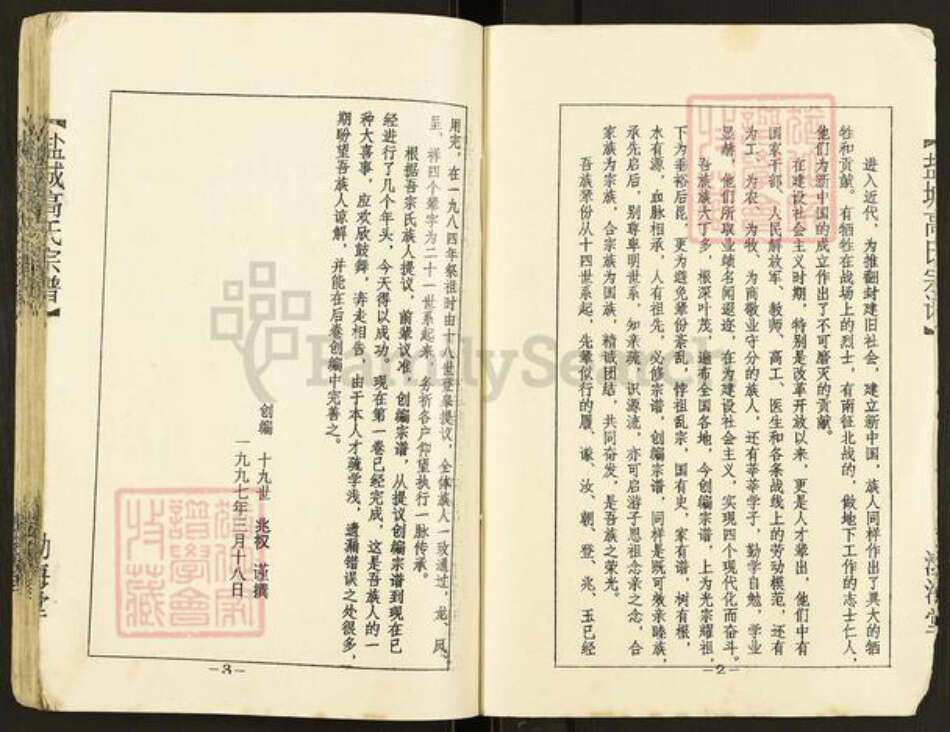 【盐城高氏宗谱】
进入近代，为推翻封建旧社会，建立新中国，族人同样作出了巨大的牺
牲和贡献。有牺牲在战场上的烈士，有南征北战的，做地下工作的志士仁人，
他们为新中国的成立作出了不可磨灭的贡献。
在建设社会主义时期，特别是改革开放以来，更是人才辈出，他们中有
国家干部、人民解放军、教师、高工、医生和各条战线上的劳动模范，还有
为工、为农、为牧、为商敬业守分的族人，还有莘莘学子，勤学自勉，学业
显赫，他们所取业绩名闻遐迩，在为建设社会主义，实现四个现代化而奋斗。
吾族族大丁多，根深叶茂，遍布全国各地，今创编宗谱，上为光宗耀祖，
下为垂裕后昆，更为避免辈份紊乱，悖祖乱宗，国有史，家有谱，树有根，
水有源，血脉相承，人有祖先，必修宗谱，创编宗谱，同样是既可效亲睦族，
承先启后，别尊卑明世系，知亲疏，识源流，亦可启游子思祖念亲之心，合
家族为宗族，合宗族为国族，精诚团结，共同奋发，是吾族之荣光。
吾族辈份从十四世系起，先辈拟行的履、谦、汝、朝、登、兆、玉已经
—2—
渤海堂
用完，在一九八四年祭祖时由十八世登皋提议，全体族人一致通过，龙、凤、
呈、祥四个辈字为二十一世系起来，务祈各户仰望执行一脉传承。
根据吾宗氏族人提议，前辈议准，创编宗谱，从提议创编宗谱到现在已
经进行了几个年头，今天得以成功，现在第一卷已经完成，这是吾族人的一
种大喜事，应欢欣鼓舞，奔走相告，由于本人才疏学浅，遗漏错误之处很多，
期盼望吾族人谅解，并能在后卷创编中完善之。
创编 十九世 兆权 谨撰
一九九七年三月十八日
—3—
【盐城高氏宗谱】
渤海堂
FamilySearch